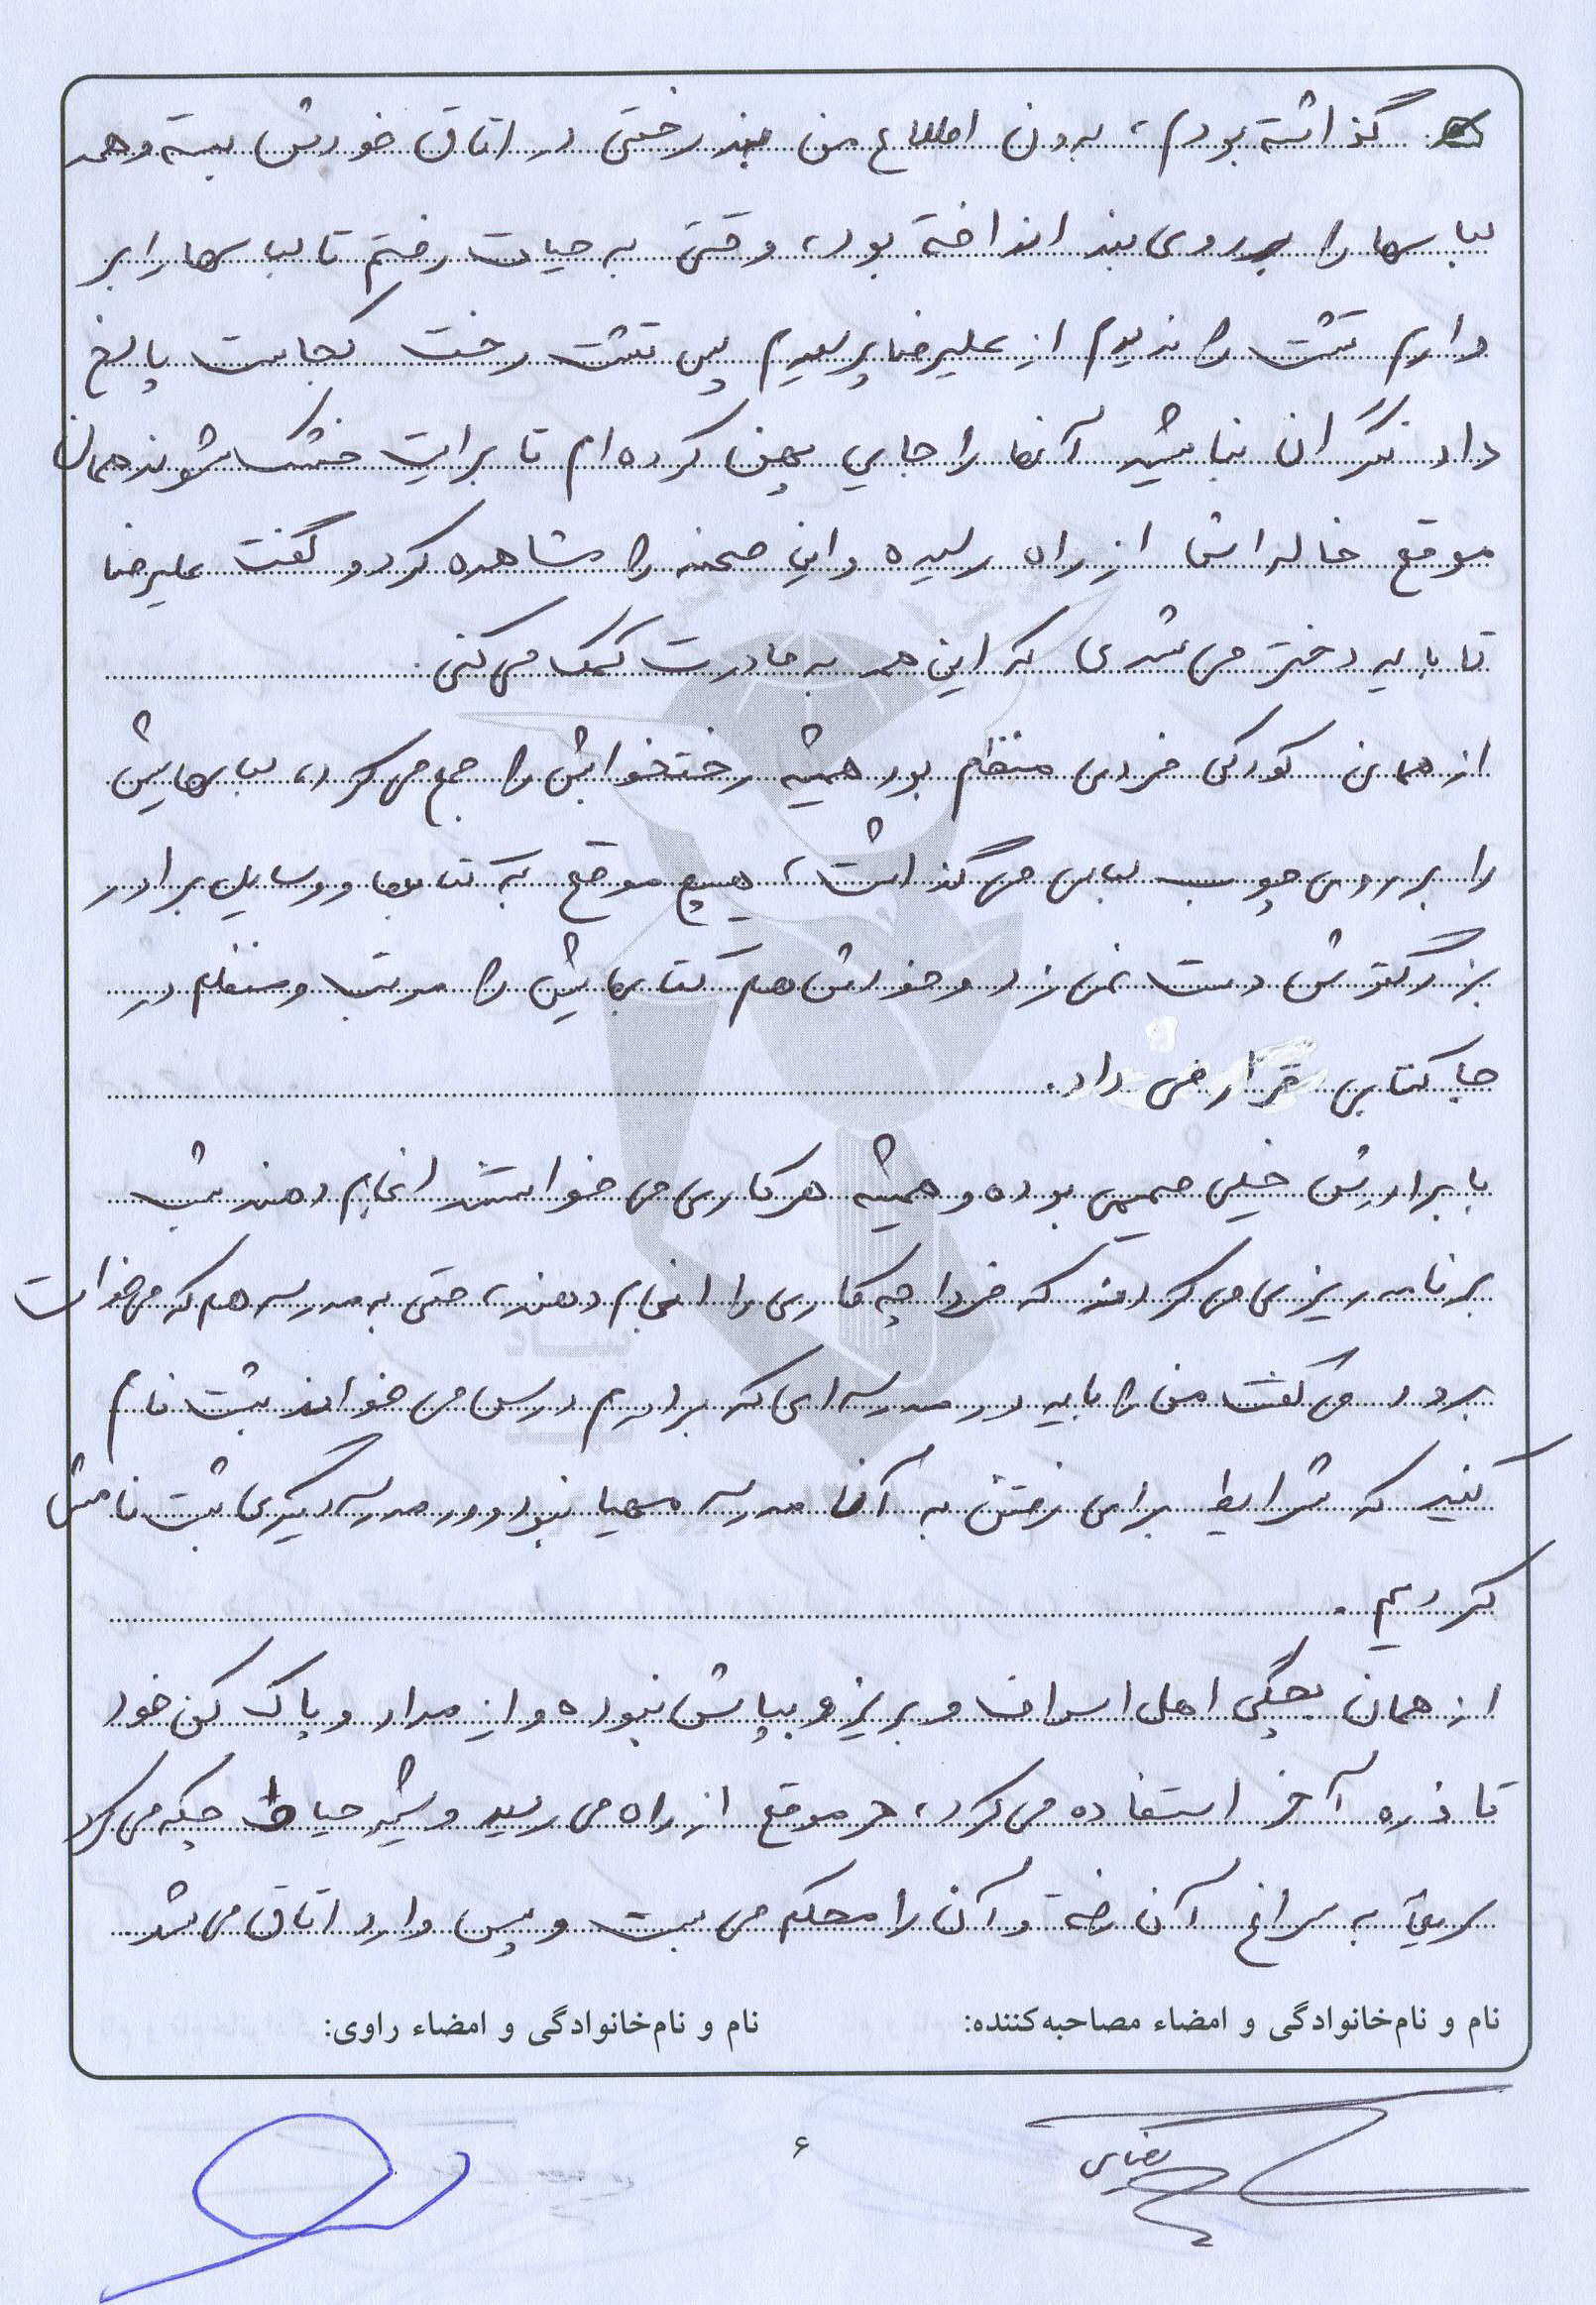 گذاشته بودم، بدون اطلاع من بند رختی در اتاق خودش بسته و همه
لباسها را بر روی بند انداخته بود، وقتی به حیات رفتم تا لباسها را بر
دارم تشت را ندیدم از علیرضا پرسیدم پس تشت رخت کجاست پاسخ
داد نگران نباشید آنها را جایی پهن کرده ام تا برایت خشک شوند همان
موقع خاله اش از راه رسیده و این صحنه را مشاهده کرد و گفت علیرضا
تا باید دختر می شدی که این همه به مادرت کمک می کنی.
از همان کودکی فردی منظم بود همیشه رختخوابش را جمع می کرد، لباسهایش
را بر روی چوب لباسی می گذاشت، هیچ موقع به کتابها و وسایل برادر
بزرگترش دست نمی زد و خودش هم کتابهایش را مرتب و منظم در
جا کتابی قرار می داد.
با برادرش خیلی صمیمی بوده و همیشه هر کاری می خواستند انجام دهند شب
برنامه ریزی می کردند که فردا چه کاری را انجام دهند، حتی به مدرسه هم که می خواست
برود می گفت من را باید در مدرسه ای که برادرم درس می خواند ثبت نام
کنید که شرایط برای رفتن به آن مدرسه مهیا نبود و در مدرسه دیگری ثبت نامش
کردیم.
از همان بچگی اهل اسراف و بریز و بپاش نبوده و از مداد و پاک کن خود
تا ذره آخر استفاده می کرد، هر موقع از راه می رسید و شیر حیاط چکه می کرد
سریع به سراغ آن رفته و آن را محکم می بست و سپس وارد اتاق می شد
نام و نام‌خانوادگی و امضاء مصاحبه‌کننده: نام و نام‌خانوادگی و امضاء راوی:
۶